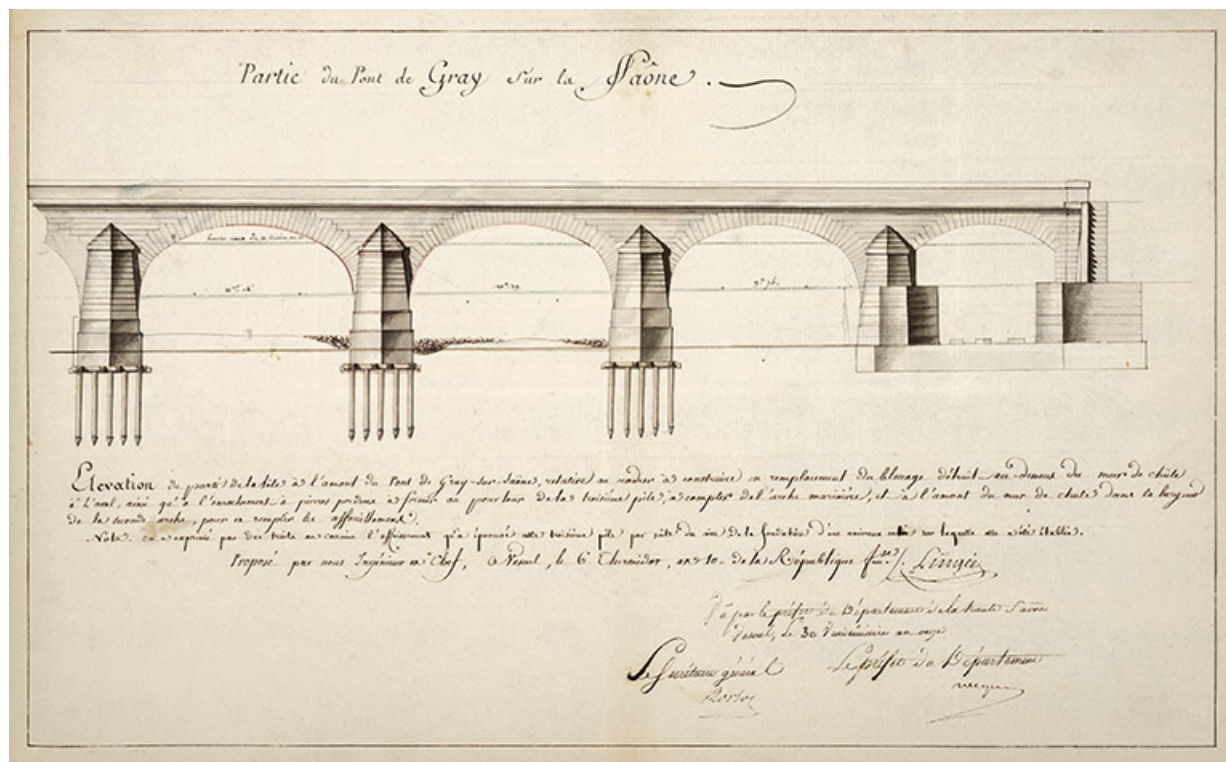 Partie du Pont de Gray sur la Saône.
Elevation de partie de la tête à l'amont du Pont de Gray-sur-Saône, relative au radier à construire en remplacement du blocage détruit au-dessus du mur de chûte
à l'aval, ainsi qu'à l'enrochement à pierres perdues à former au pourtour de la troisième pile, à compter de l'arche marinière, et à l'amont du mur de chute dans la largeur
de la seconde arche, pour en remplir les affouillements.
Nota. on a exprimé par des traits au carmin l'affaissement qu'a éprouvé cette troisième pile par suite du vice de la fondation d'une ancienne sur laquelle elle a été établie.
Proposé par nous Ingénieur en Chef, à Vesoul, le 6 Thermidor, an 10 de la République
Vu par le préfet du Département de la haute Saône
Vesoul, le 30 Vendémiaire an onze
Le Secrétaire général
Le préfet du Département